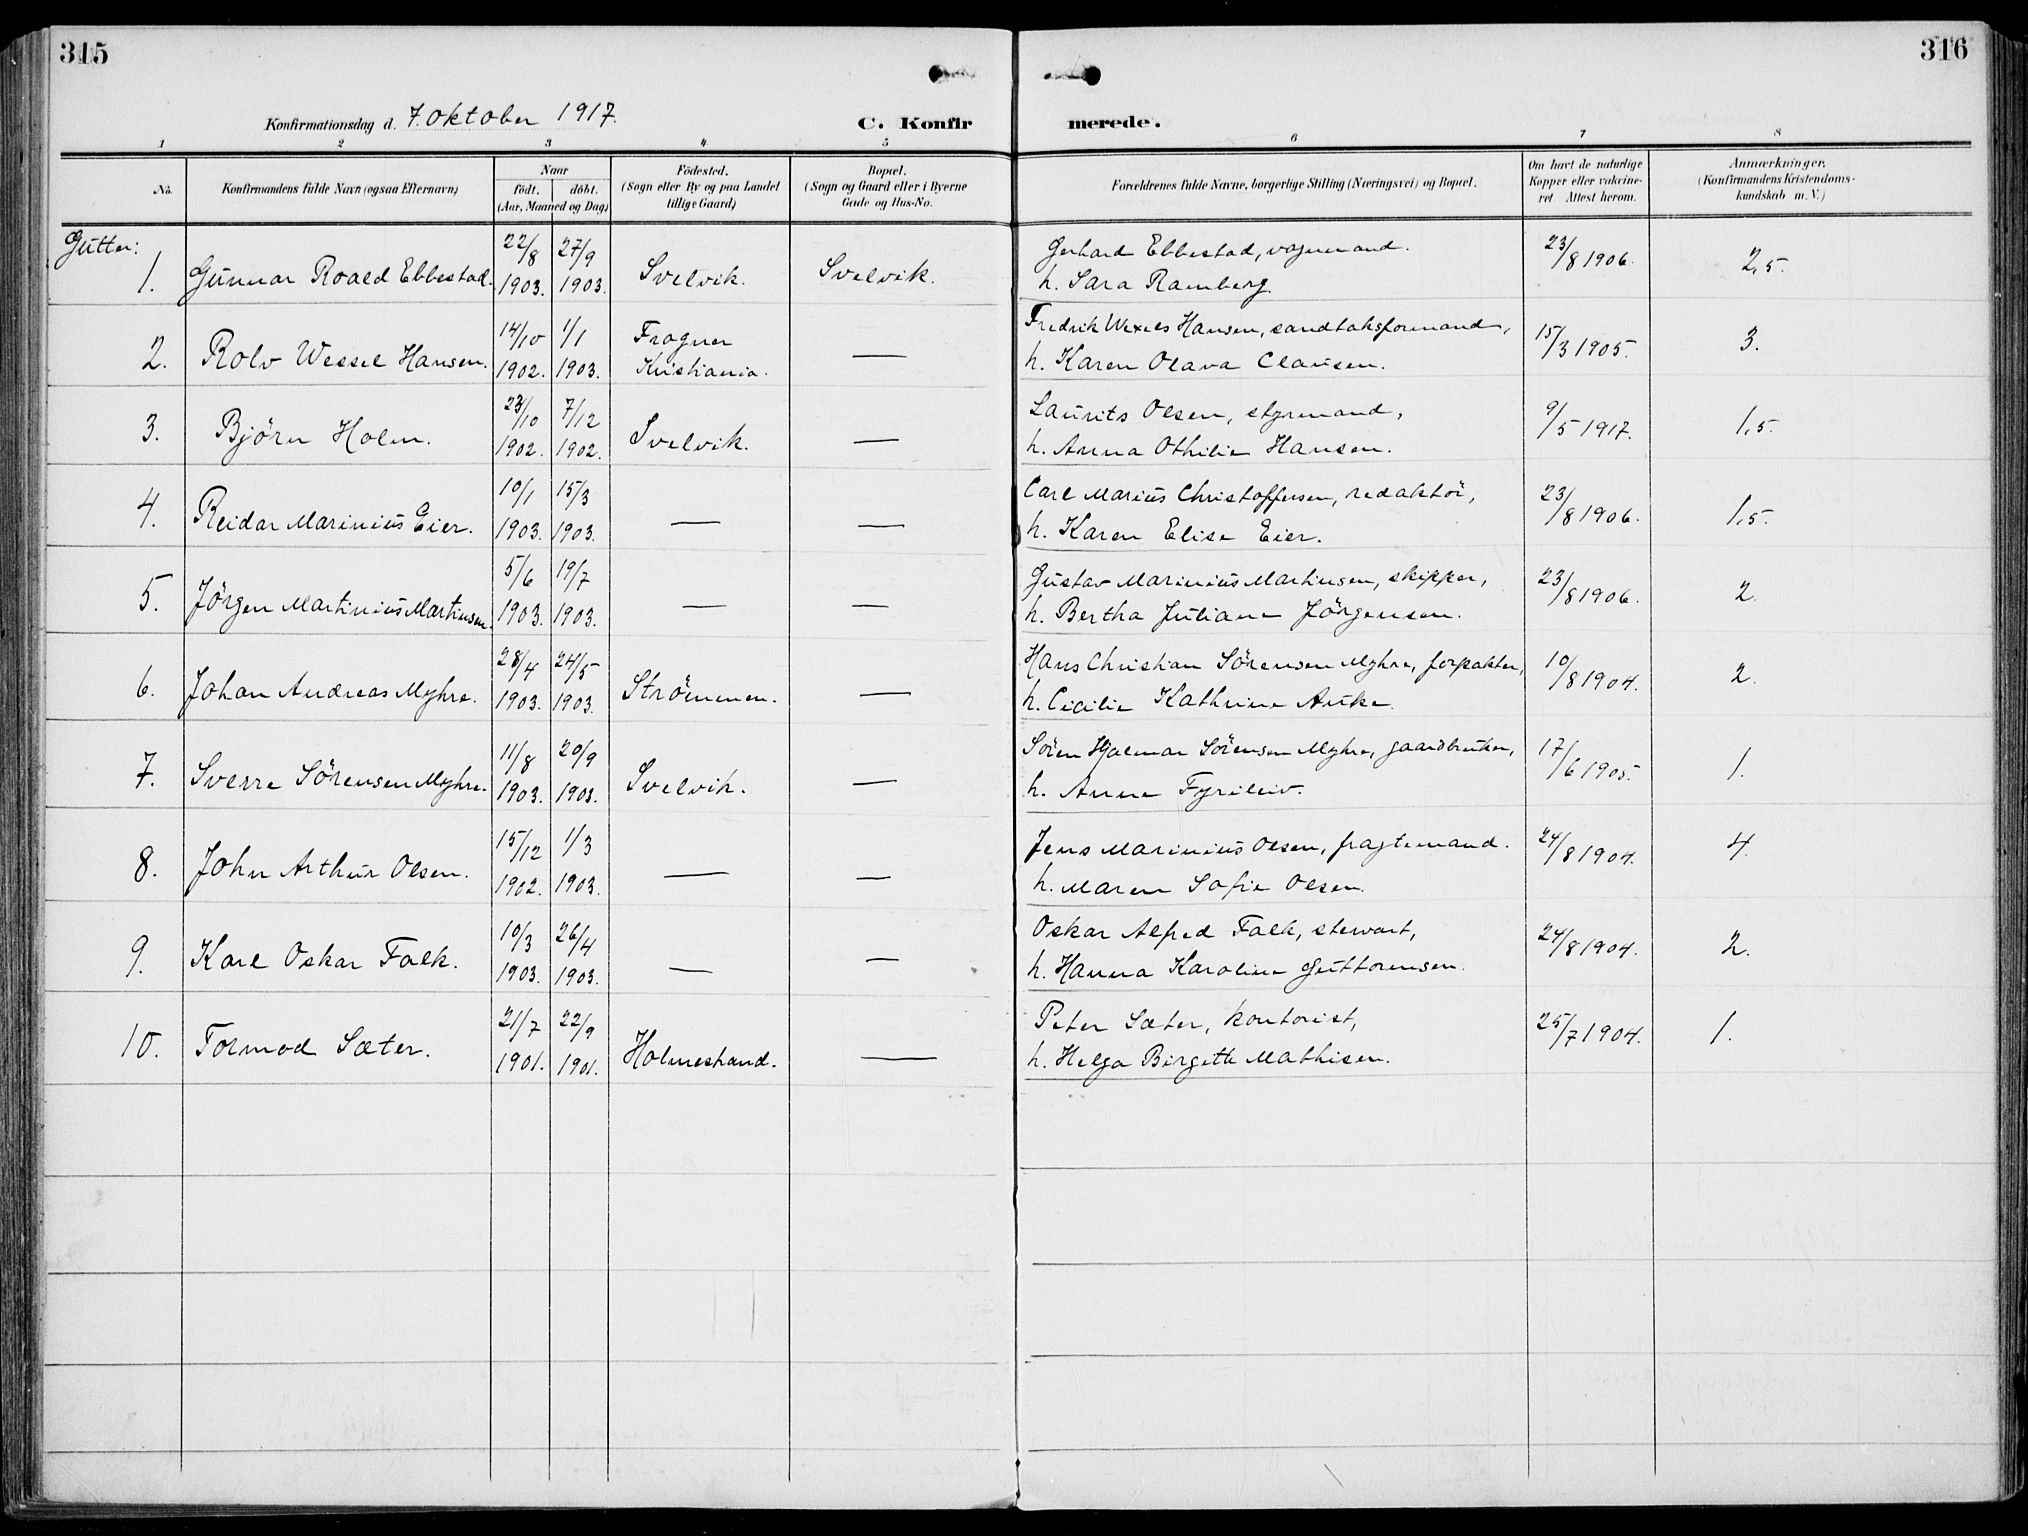 315
316
Konfirmationsdag d. 7. oktober 1917.
C. Konfirmerede.
1 2 3 4 5 6 7 8
No.
Konfirmandens fulde Navn (ogsaa Efternavn)
Naar
födt. döbt.
(Aar, Maaned og Dag)
Födested.
(Sogn eller By og paa Landet
tillige Gaard)
Bopæl.
(Sogn og Gaard eller i Byerne
Gade og Hus-No.
Forældrenes fulde Navne, borgerlige Stilling (Næringsvei) og Bopæl.
Om havt de naturlige
Kopper eller vakcine-
ret. Attest herom.
Anmærkninger.
(Konfirmandens Kristendoms-
kundskab m. V.)
Gutter:
1. Gunnar Roald Ebbestad. 22/8 1903. 27/9 1903. Svelvik. Svelvik. Gerhard Ebbestad, vognmand. 23/8 1906. 2,5.
h. Sara Ramberg.
2. Rolv Wessel Hansen. 14/10 1902. 1/1 1903. Frogner Kristiania. — Fredrik Wexels Hansen, sandtaksformand, 15/3 1905. 3.
h. Karen Olava Clausen.
3. Björn Holm. 23/10 1902. 7/12 1902. Svelvik. — Laurits Olsen, styrmand, 9/5 1917. 1,5.
h. Anna Othilie Hansen.
4. Reidar Marinius Eier. 10/1 1903. 15/3 1903. — — Carl Marius Christoffersen, redaktör, 23/8 1906. 1,5.
h. Karen Elise Eier.
5. Jörgen Martinius Martinsen. 5/6 1903. 19/7 1903. — — Gustav Marinius Martinsen, skipper, 23/8 1906. 2.
h. Bertha Juliane Jörgensen.
6. Johan Andreas Myhre. 28/4 1903. 24/5 1903. Strömmen. — Hans Christian Sörensen Myhre, forpakter, 10/8 1904. 2.
h. Cicilie Kathrine Auke.
7. Sverre Sörensen Myhre. 11/8 1903. 20/9 1903. Svelvik. — Sören Hjalmar Sörensen Myhre, gaardbruker, 17/6 1905. 1.
h. Anne Fyrileiv.
8. John Arthur Olsen. 15/12 1902. 1/3 1903. — — Jens Marinius Olsen, fragtemand. 24/8 1904. 4.
h. Maren Sofie Olsen.
9. Karl Oskar Falk. 10/3 1903. 26/4 1903. — — Oskar Alfred Falk, stewart, 24/8 1904. 2.
h. Hanna Karoline Guttormsen.
10. Tormod Sæter. 21/7 1901. 22/9 1901. Holmestrand. — Peter Sæter, kontorist, 25/7 1904. 1.
h. Helga Birgitte Mathisen.